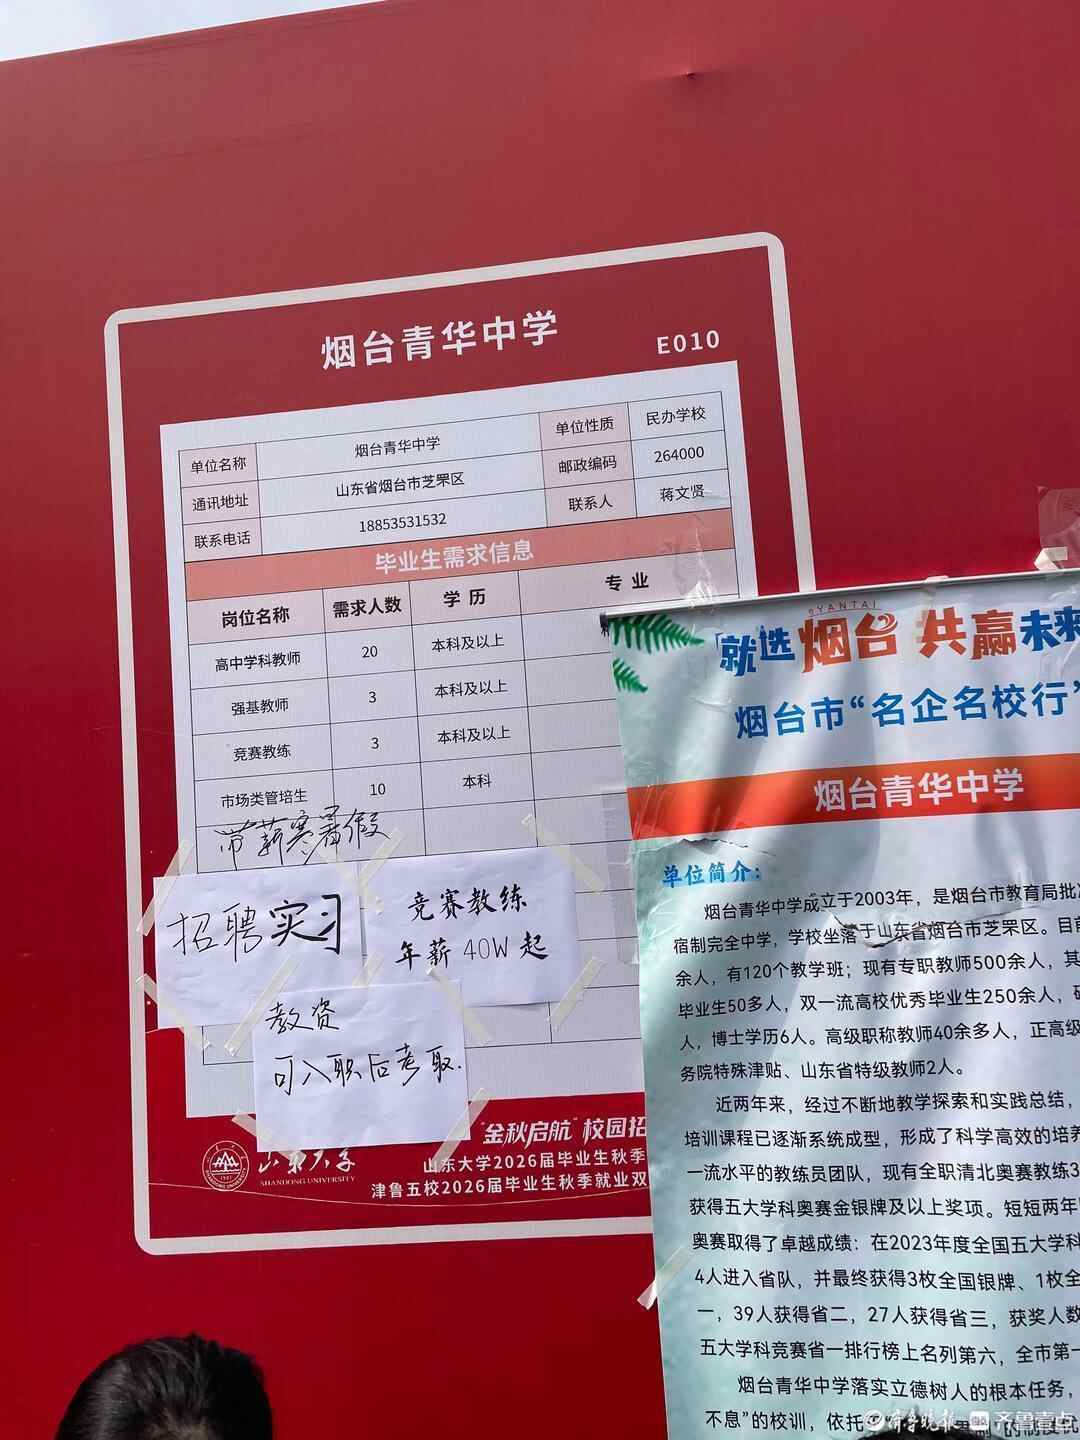 烟台青华中学
E010
单位名称 烟台青华中学 单位性质 民办学校
通讯地址 山东省烟台市芝罘区 邮政编码 264000
联系电话 18853531532 联系人 蒋文贤
毕业生需求信息
岗位名称 需求人数 学历 专业
高中学科教师 20 本科及以上
强基教师 3 本科及以上
竞赛教练 3 本科及以上
市场类管培生 10 本科
带薪寒暑假
招聘实习
竞赛教练
年薪40W起
教资
可入职后考取.
山东大学
SHANDONG UNIVERSITY
"金秋启航"校园招
山东大学2026届毕业生秋季
津鲁五校2026届毕业生秋季就业双
YANTAI
「就选烟台 共赢未来
烟台市"名企名校行"
烟台青华中学
单位简介：
烟台青华中学成立于2003年，是烟台市教育局批
宿制完全中学，学校坐落于山东省烟台市芝罘区。目前
余人，有120个教学班；现有专职教师500余人，其
毕业生50多人，双一流高校优秀毕业生250余人，硕
人，博士学历6人。高级职称教师40余多人，正高级
务院特殊津贴、山东省特级教师2人。
近两年来，经过不断地教学探索和实践总结，
培训课程已逐渐系统成型，形成了科学高效的培养
一流水平的教练员团队，现有全职清北奥赛教练3
获得五大学科奥赛金银牌及以上奖项。短短两年
奥赛取得了卓越成绩：在2023年度全国五大学科
4人进入省队，并最终获得3枚全国银牌、1枚全
一，39人获得省二，27人获得省三，获奖人数
五大学科竞赛省一排行榜上名列第六，全市第一
烟台青华中学落实立德树人的根本任务，
不息"的校训，依托
齐鲁晚报 齐鲁壹点